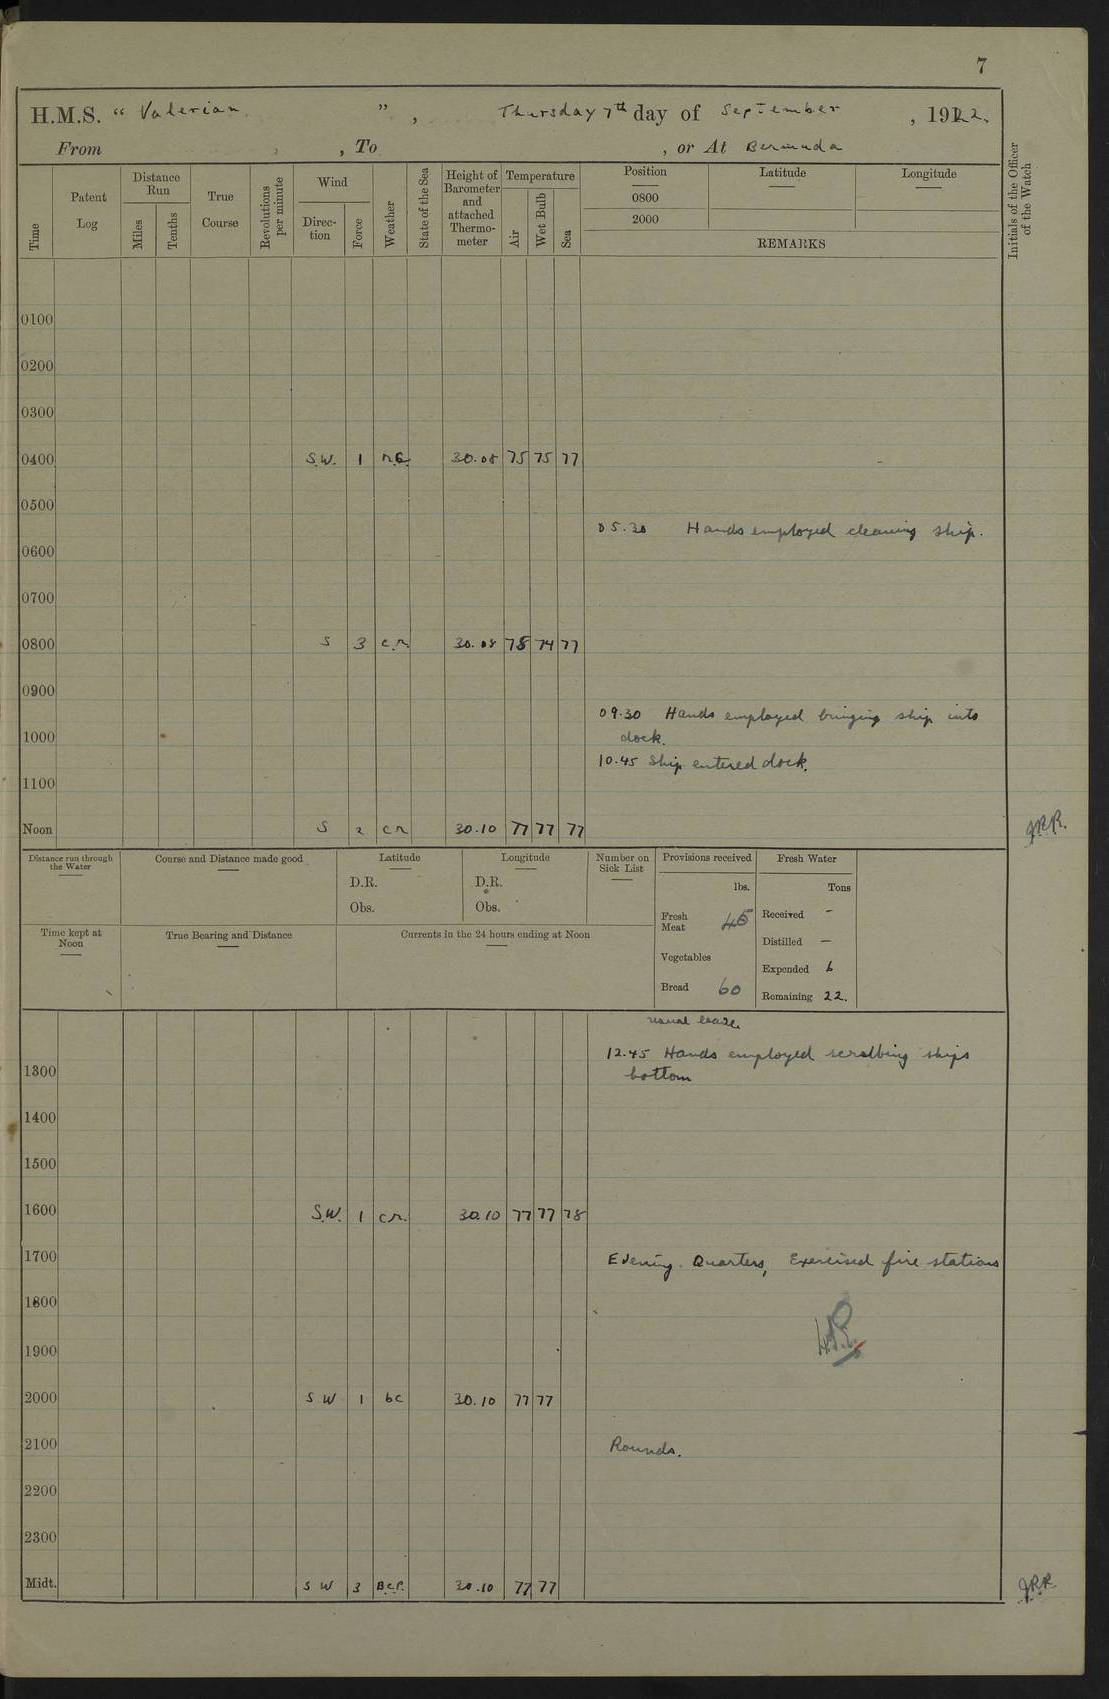 7
H.M.S. “ Valerian. ”, Thursday 7th day of September, 1922.
From , To , or At Bermuda
Time
Patent Log
Distance Run
Miles
Tenths
True Course
Revolutions per minute
Wind
Direc-tion
Force
Weather
State of the Sea
Height of Barometer and attached Thermo-meter
Temperature
Air
Wet Bulb
Sea
Position
0800
2000
Latitude
Longitude
REMARKS
Initials of the Officer of the Watch
0100
0200
0300
0400 S.W. 1 r.c. 30.08 75 75 77
0500
05.30 Hands employed cleaning ship.
0600
0700
0800 S 3 c.r. 30.08 78 74 77
0900
09.30 Hands employed bringing ship into
dock.
1000
10.45 Ship entered dock.
1100
Noon S 2 c r 30.10 77 77 77 J.R.R.
Distance run through the Water
Course and Distance made good
Latitude
D.R.
Obs.
Longitude
D.R.
Obs.
Number on Sick List
Provisions received
lbs.
Fresh Meat 45
Vegetables
Bread 60
Fresh Water
Tons
Received -
Distilled -
Expended 6
Remaining 22.
Time kept at Noon
True Bearing and Distance
Currents in the 24 hours ending at Noon
usual leave.
12.45 Hands employed scrubbing ships
bottom
1300
1400
1500
1600 S.W. 1 cr. 30.10 77 77 78
1700 Evening Quarters, Exercised fire stations
1800
1900
2000 S W 1 bc 30.10 77 77
2100 Rounds.
2200
2300
Midt. S W 3 B.c.P. 30.10 77 77 J.R.R.